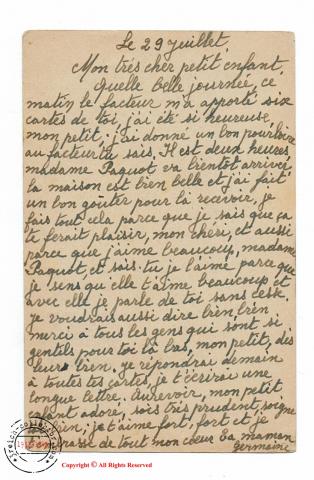 Le 29 Juillet,
Mon très cher petit enfant,
Quelle belle journée, ce
matin le facteur m'a apporté six
cartes de toi, j'ai été si heureuse
mon petit, j'ai donné un bon pourboire
au facteur tu sais, Il est deux heures
madame Paquot va bientôt arriver
la maison est bien belle et j'ai fait
un bon goûter pour la recevoir, je
fais tout cela parce que je sais que ça
te ferait plaisir, mon chéri, et aussi
parce que j'aime beaucoup, madame
Paquot, et sais-tu je l'aime parce que
je sens qu'elle t'aime beaucoup et
avec elle je parle de toi sans cesse
je voudrais aussi dire bien, bien
merci à tous les gens qui sont si
gentils pour toi là bas, mon petit, dis
leur bien, je répondrai demain
à toutes tes cartes, je t'écrirai une
longue lettre. Aurevoir, mon petit
enfant adoré, sois très prudent, soigne
bien, je t'aime fort, fort et je
t'embrasse de tout mon coeur ta maman
germaine
Copyright © All Rights Reserved